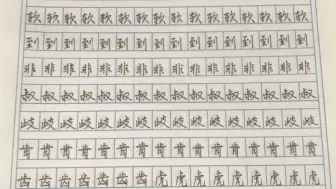 软软软软软软软软软软软软软
到到到到到到到到到到到到到
非非非非非非非非非非非非非
叔叔叔叔叔叔叔叔叔叔叔叔叔
歧歧歧歧歧歧歧歧歧歧歧歧歧
肯肯肯肯肯肯肯肯肯肯肯肯肯
齿齿齿齿齿齿齿虎虎虎虎虎虎